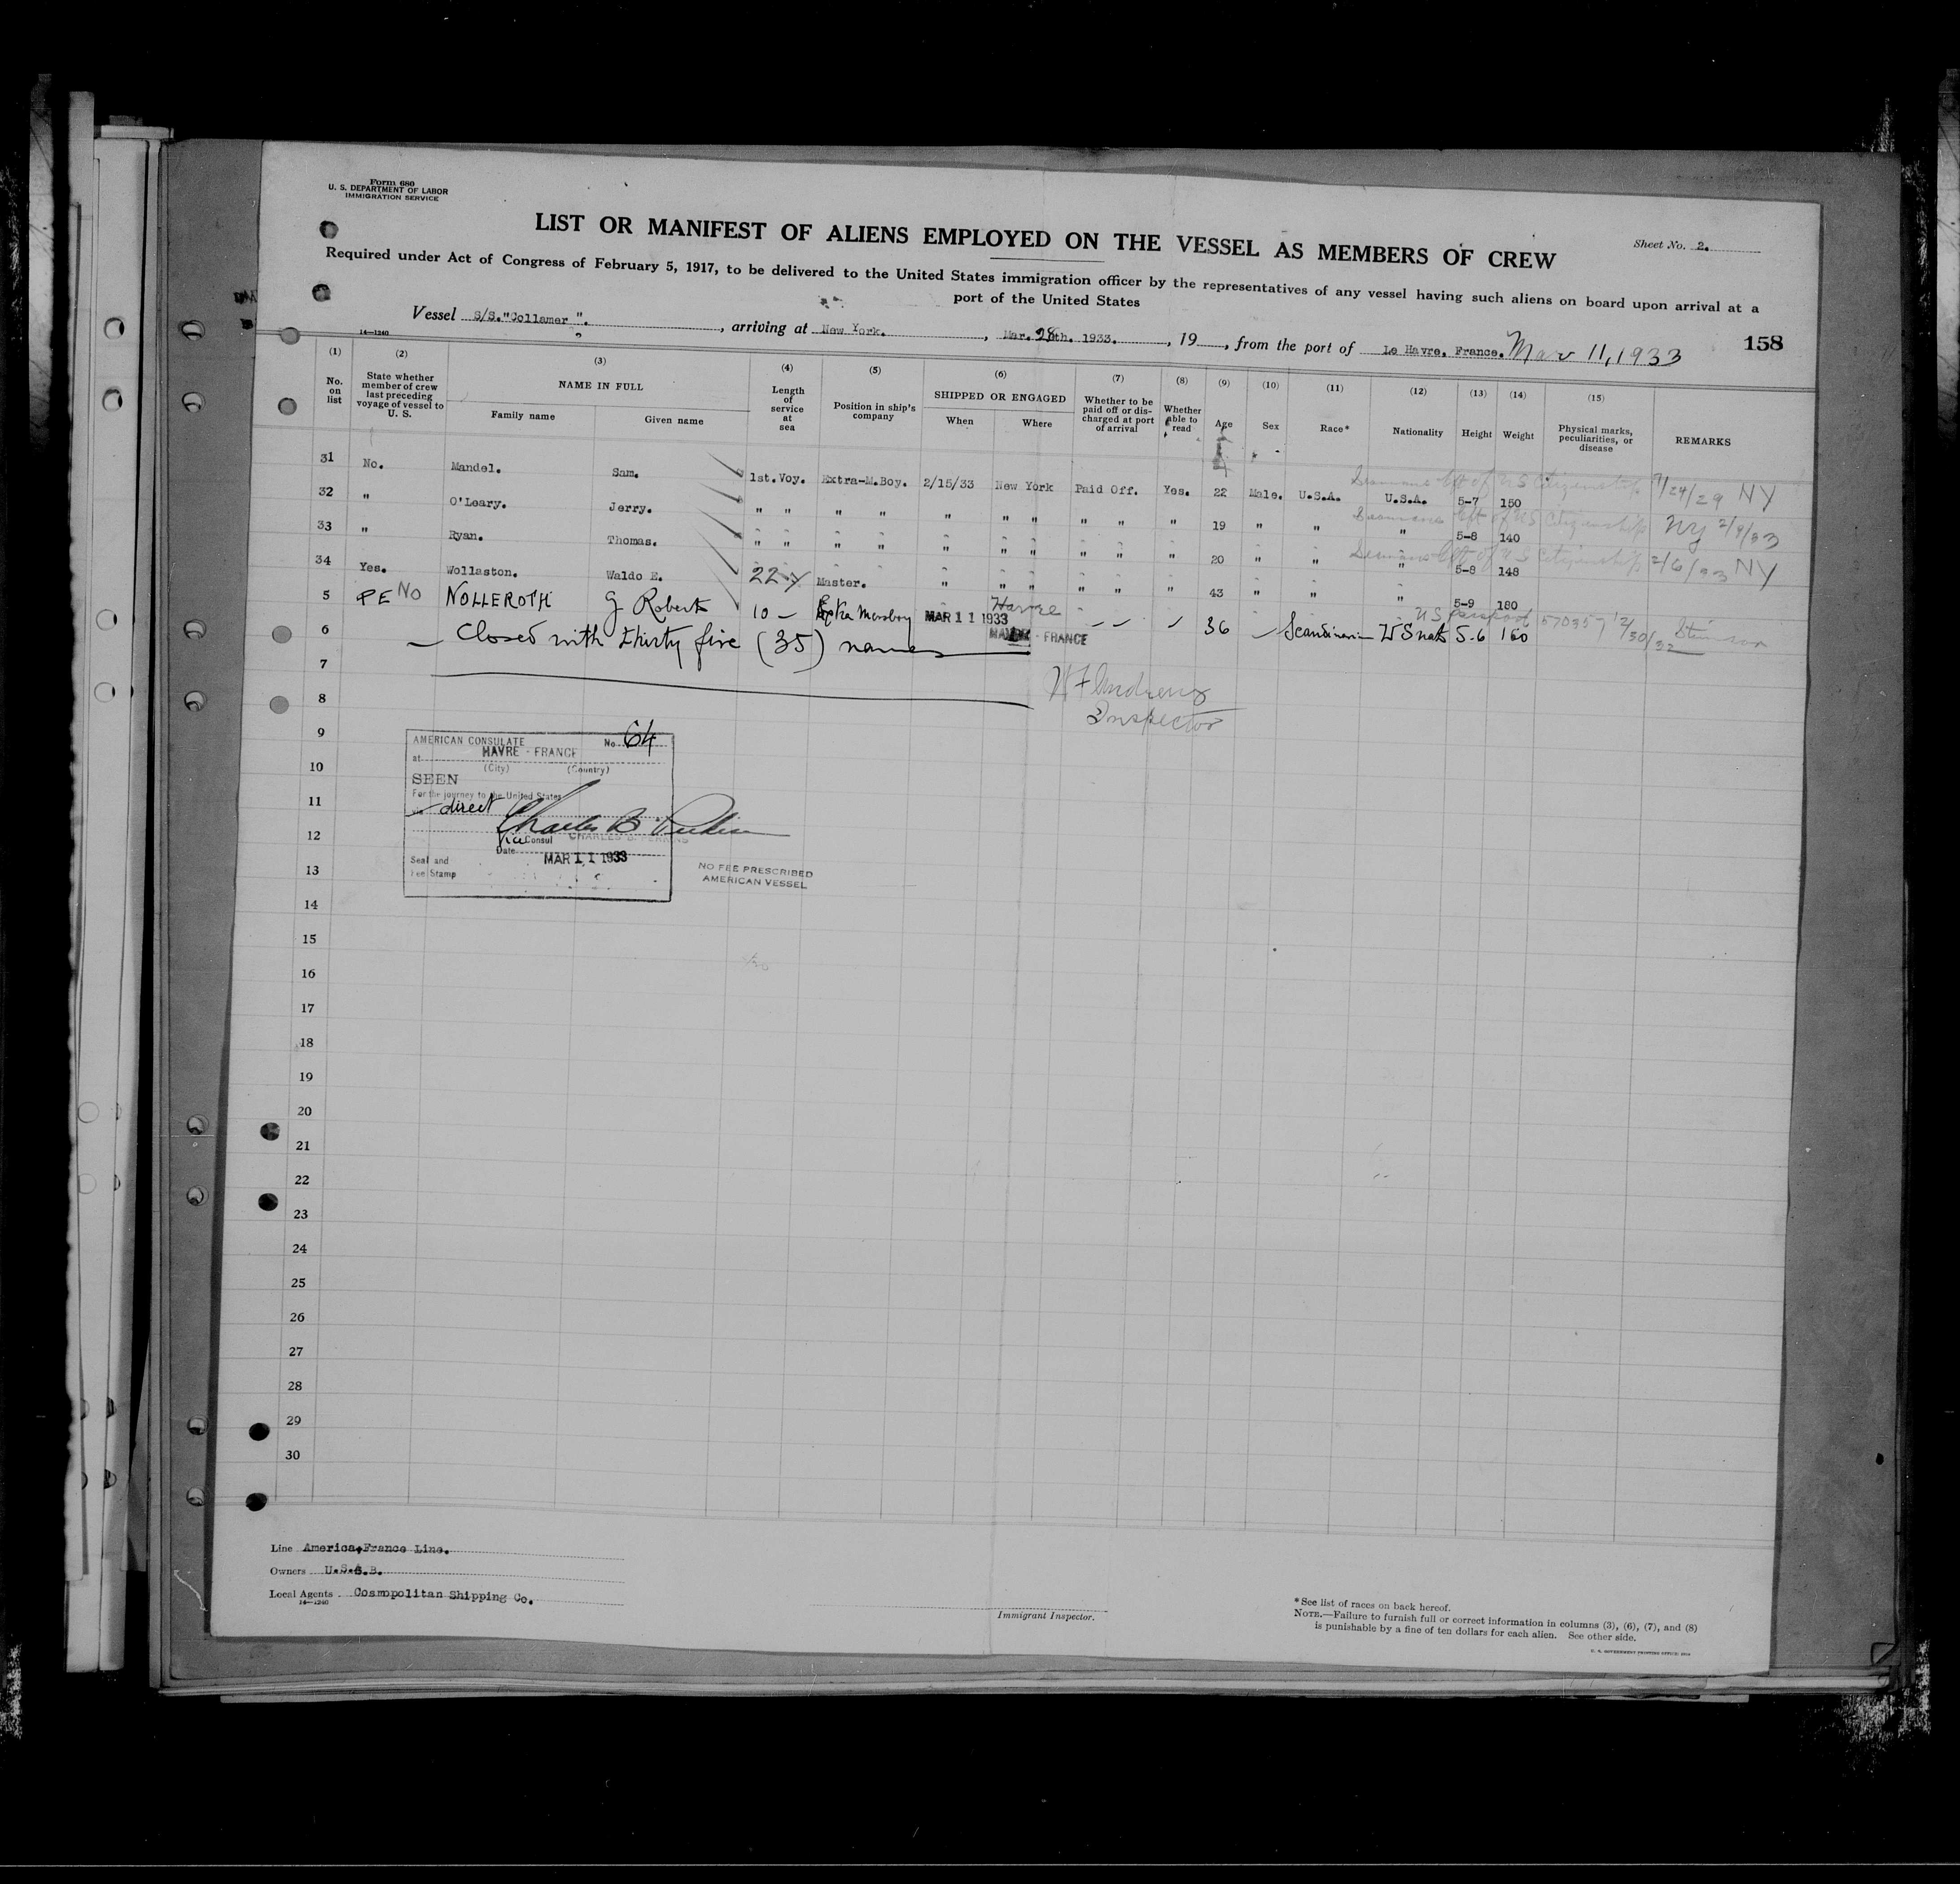 Form 680
U. S. DEPARTMENT OF LABOR
IMMIGRATION SERVICE
LIST OR MANIFEST OF ALIENS EMPLOYED ON THE VESSEL AS MEMBERS OF CREW
Sheet No. 2.
Required under Act of Congress of February 5, 1917, to be delivered to the United States immigration officer by the representatives of any vessel having such aliens on board upon arrival at a
port of the United States
Vessel S/S."Collamer ". , arriving at New York. , Mar. 28th. 1933. , 19 , from the port of Le Havre, France. Mar 11, 1933
158
14—1240
(1) No. on list
(2) State whether member of crew last preceding voyage of vessel to U. S.
(3) NAME IN FULL Family name Given name
(4) Length of service at sea
(5) Position in ship's company
(6) SHIPPED OR ENGAGED When Where
(7) Whether to be paid off or discharged at port of arrival
(8) Whether able to read
(9) Age
(10) Sex
(11) Race*
(12) Nationality
(13) Height
(14) Weight
(15) Physical marks, peculiarities, or disease
REMARKS
31 No. Mandel. Sam. 1st.Voy. Extra-M.Boy. 2/15/33 New York Paid Off. Yes. 22 Male. U.S.A. U.S.A. 5-7 150 Seamans Cft of US Citizenship 7/24/29 NY
32 " O'Leary. Jerry. " " " " " " " " " " 19 " " " 5-8 140 Seamans Cft of US Citizenship NY 2/9/33
33 " Ryan. Thomas. " " " " " " " " " " 20 " " " 5-8 148 Seamans Cft of US Citizenship 2/6/33 NY
34 Yes. Wollaston. Waldo E. 22 y Master. " " " " " " 43 " " " 5-9 180
5 PE No NOLLEROTH G Robert 10 — Extra Messboy MAR 11 1933 Havre HAVRE - FRANCE 36 Scandinavian US nat 5-6 160 US Passport 570357 12/30/32 Stimson
6 Closed with thirty five (35) names
7
8
H F Andrews
Inspector
9
10
11
12
13
14
15
16
17
18
19
20
21
22
23
24
25
26
27
28
29
30
AMERICAN CONSULATE No. 64
at HAVRE - FRANCE
(City) (Country)
SEEN
For the journey to the United States
via direct
Charles B. Perkins
Vice Consul CHARLES B. PERKINS
Date MAR 11 1933
Seal and
Fee Stamp
NO FEE PRESCRIBED
AMERICAN VESSEL
Line America-France Line.
Owners U.S.S.B.
Local Agents Cosmopolitan Shipping Co.
14—1240
Immigrant Inspector.
* See list of races on back hereof.
NOTE.—Failure to furnish full or correct information in columns (3), (6), (7), and (8)
is punishable by a fine of ten dollars for each alien. See other side.